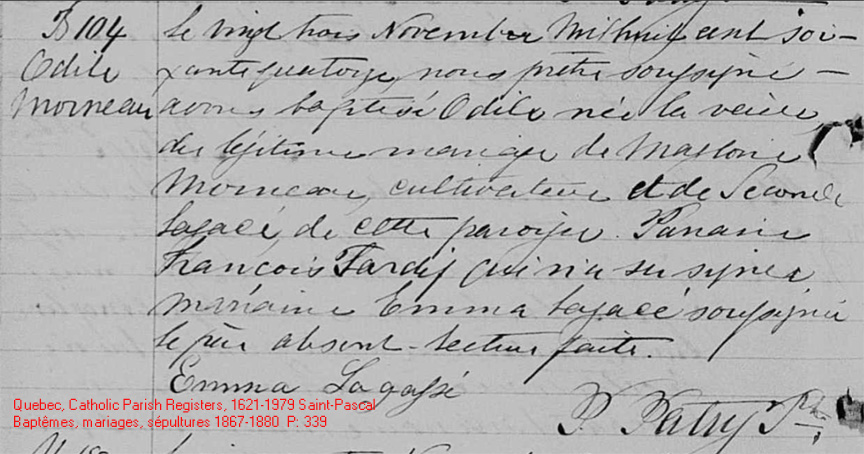 B 104
Odile
Morneau
Le vingt trois Novembre Mil huit cent soi-
xante quatorze, nous prêtre soussigné -
avons baptisé Odile née la veille
du légitime mariage de
Morneau, cultivateur et de Seconde
Lagacé, de cette paroisse. Parain
François Tardif qui n'a su signer
maraine Emma Lagacé soussignée
le père absent. Lecture faite.
Emma Lagassé
P. Patry Ptre
Quebec, Catholic Parish Registers, 1621-1979 Saint-Pascal
Baptêmes, mariages, sépultures 1867-1880 P: 339